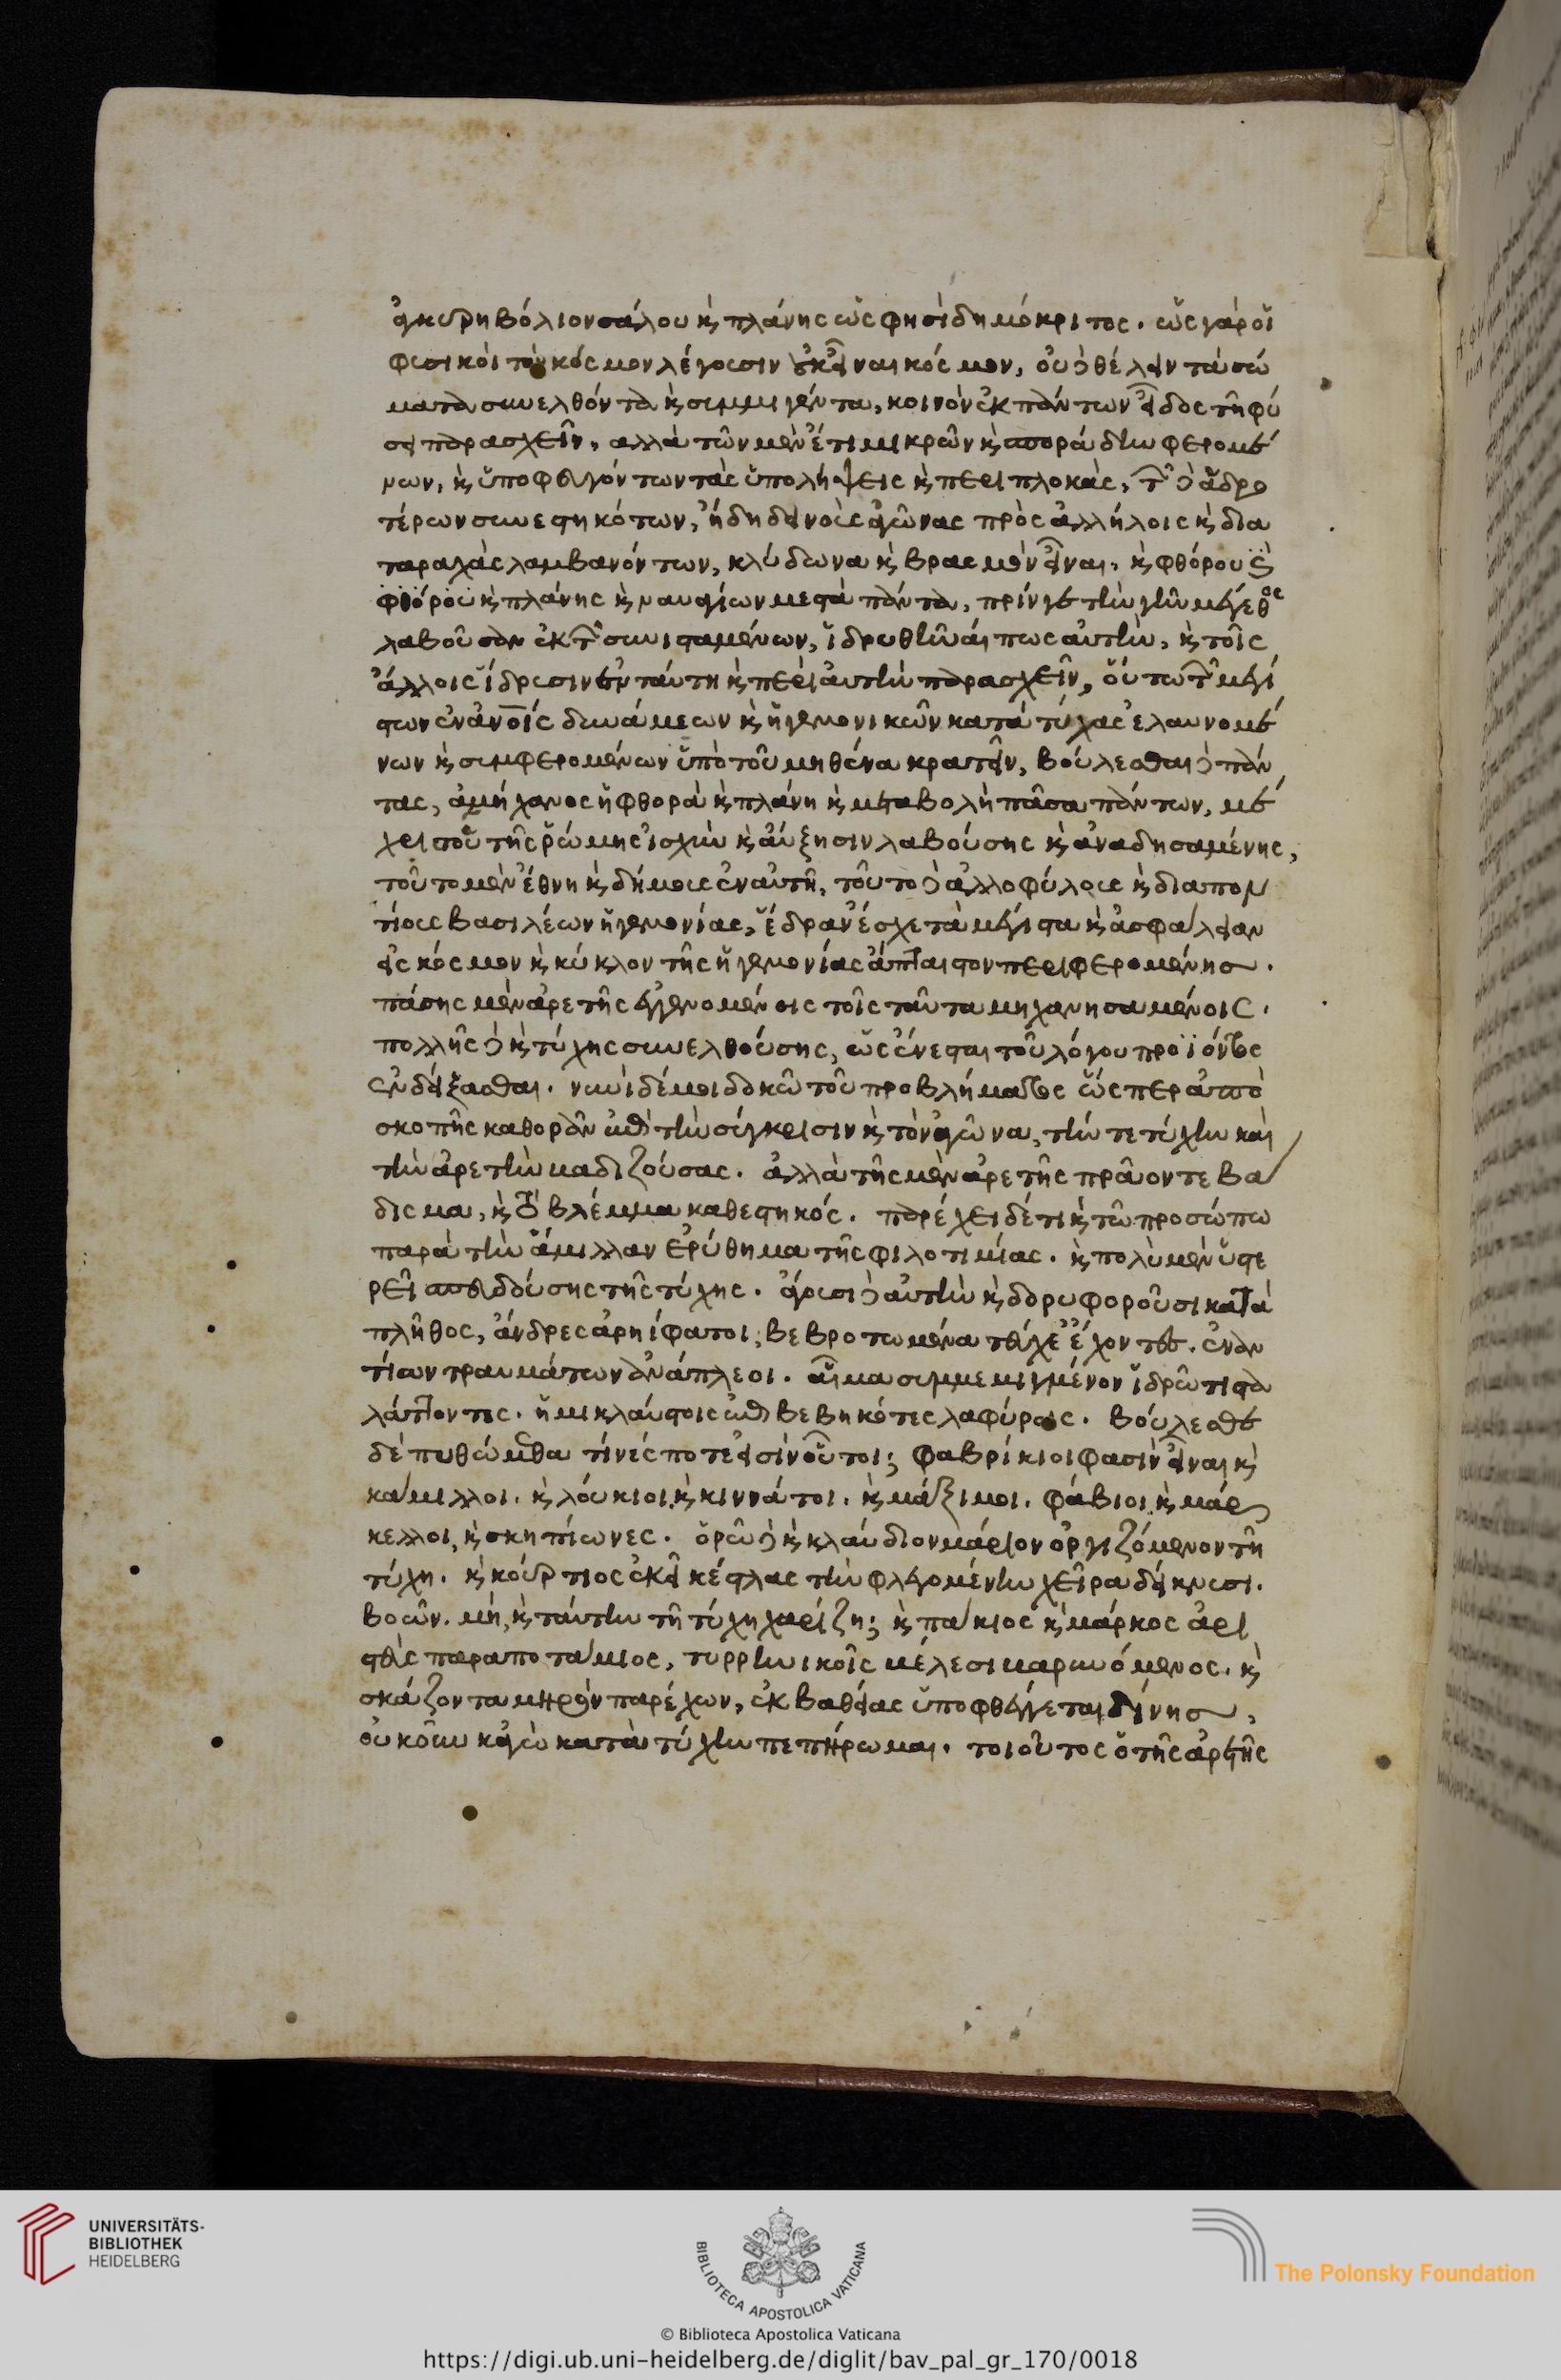 ἀγκυρηβόλιον σάλου καὶ πλάνης ὥς φησὶ δημόκριτος. ὡς γὰρ οἱ
φυσικοὶ τὸν κόσμον λέγουσιν οὐκ εἶναι κόσμον, οὐδὲ θέλειν τὰ σώ
ματα συνελθόντα καὶ συμμιγέντα, κοινὸν ἐκ πάντων εἶδος τῆ φύ
σει παρασχεῖν, αλλὰ τῶν μὲν ἔτι μικρῶν καὶ σποράδην φερομέ
νων, καὶ ὑποφευγόντων τὰς ὑπολήψεις καὶ περιπλοκὰς, τῶν δὲ ἁδρο
τέρων συνεστηκότων, ἤδη δεινοὺς ἀγῶνας πρὸς ἀλλήλοις καὶ δια
ταραχὰς λαμβανόντων, κλύδωνα καὶ βρασμὸν εἶναι, καὶ φθόρου καὶ
φθόρου καὶ πλάνης καὶ ναυαγίων μεστὰ πάντα, πρίν γε τὴν γῆν μέγεθος
λαβοῦσαν ἐκ τῶν συνισταμένων, ἱδρυθῆναί πως αὐτὴν, καὶ τοῖς
ἄλλοις ἵδρυσιν ἐν ταύτη καὶ περὶ αὐτὴν παρασχεῖν, οὕτω τῶν μεγί
στων ἐν ἀνοις δυνάμεων καὶ ἡγεμονικῶν κατὰ τύχας ἐλαυνομέ
νων καὶ συμφερομένων ὑπὸ τοῦ μηθένα κρατεῖν, βούλεσθαι δὲ πάν
τας, ἀμήχανος ἡ φθορὰ καὶ πλάνη καὶ μεταβολὴ πᾶσα πάντων, μέ
χρις τοῦ τῆς ῥώμης ἰσχὺν καὶ αὔξησιν λαβούσης καὶ ἀναδησαμένης,
τοῦτο μὲν ἔθνη καὶ δήμους ἐν αὐτῆ, τοῦτο δὲ ἀλλοφύλους καὶ διαπον
τίους βασιλέων ἡγεμονίας, ἕδραν ἔσχε τὰ μέγιστα καὶ ἀσφάλειαν
εἰς κόσμον καὶ κύκλον τῆς ἡγεμονίας ἄπταιστον περιφερομένης.
πάσης μὲν ἀρετῆς ἐγγενομένοις τοῖς ταῦτα μηχανησαμένοις.
πολλῆς δὲ καὶ τύχης συνελθούσης, ὡς ἔνεσται τοῦ λόγου προϊόντος
ἐνδείξασθαι. νυνὶ δέ μοι δοκῶ τοῦ προβλήματος ὥσπερ ἀπὸ
σκοπῆς καθορᾶν ἐπὶ τὴν σύγκρισιν καὶ τὸν ἀγῶνα, τήν τε τύχην καὶ
τὴν ἀρετὴν μαδιζούσας. ἀλλὰ τῆς μὲν ἀρετῆς πρᾶον τε βα
δισμα, καὶ τὸ βλέμμα καθεστηκός. παρέχει δέ τι καὶ τῶ προσώπω
παρὰ τὴν ἅμιλλαν ἐρύθημα τῆς φιλοτιμίας. καὶ πολὺ μὲν ὑστε
ρεῖ σπευδούσης τῆς τύχης. ἄγουσι δὲ αὐτὴν καὶ δορυφοροῦσι κατὰ
πλῆθος, ἄνδρες ἀρηίφατοι, βεβροτωμένα τεύχε᾽ ἔχοντες. ἐναν
τίων τραυμάτων ἀνάπλεοι. αἷμα συμμεμιγμένον ἱδρῶτι στα
λάττοντες. ἡμικλαύστοις ἐπιβεβηκότες λαφύροις. βούλεσθε
δὲ πυθώμεθα τίνές ποτε εἰσὶν οὗτοι; φαβρίκιοι φασὶν εἶναι καὶ
κάμιλλοι. καὶ λούκιοι, καὶ κιννάτοι. καὶ μάξιμοι. φάβιοι, καὶ μάρ
κελλοι, καὶ σκηπίωνες. ὁρῶ δὲ καὶ κλαύδιον μάριον ὀργιζόμενον τῆ
τύχη. καὶ κούρτιος ἐκεῖ κέστλας τὴν φλεγομένην χεῖρα δείκνυσι.
βοῶν. μὴ, καὶ ταύτην τῆ τύχη χαρίζη; καὶ πάκιος καὶ μάρκος ἀρι
στεὺς παραποτάμιος, τυρρηνικοῖς μέλεσι μαρνυόμενος. καὶ
σκάζοντα μηρὸν παρέχων, ἐκ βαθείας ὑποφθέγγεται δίνης,
οὐκοῦν κἀγὼ κατὰ τύχην πεπήρωμαι. τοιοῦτος ὁ τῆς ἀρετῆς
UNIVERSITÄTS-
BIBLIOTHEK
HEIDELBERG
BIBLIOTECA APOSTOLICA VATICANA
The Polonsky Foundation
© Biblioteca Apostolica Vaticana
https://digi.ub.uni-heidelberg.de/diglit/bav_pal_gr_170/0018